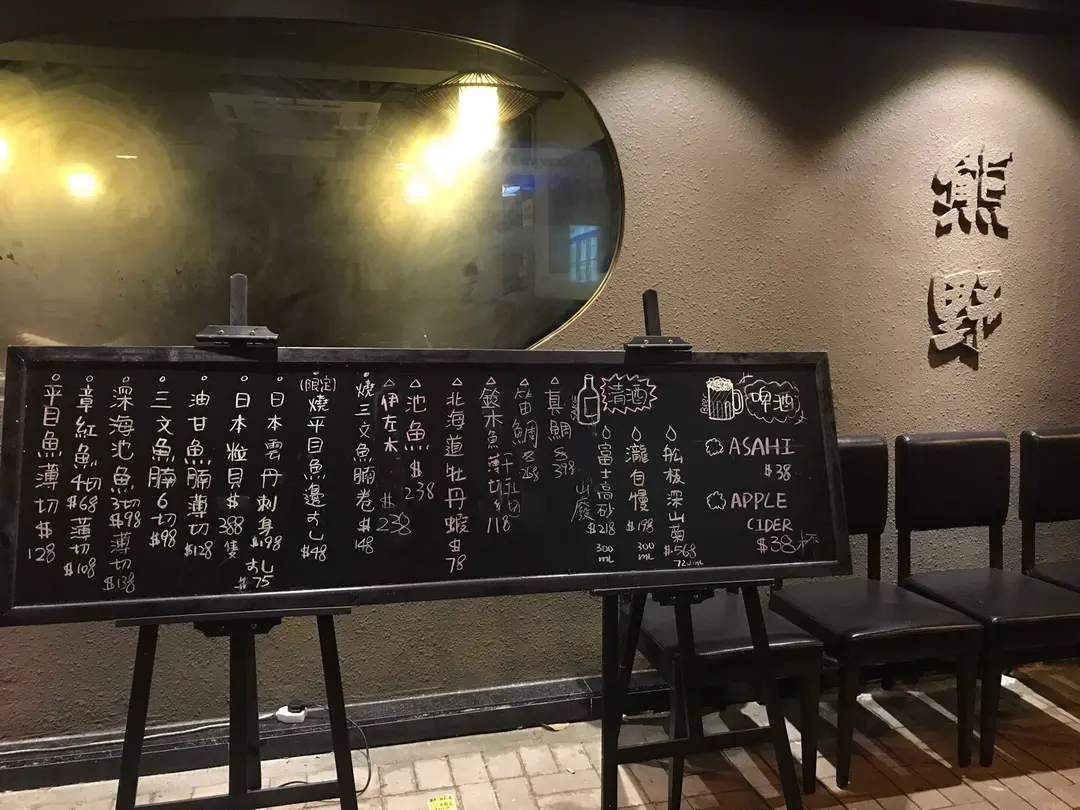 熊野
平目魚薄切 $128
章紅魚4切$68 薄切$108
深海池魚3切$98 薄切$138
三文魚腩6切$98
油甘魚腩薄切$128
日本粒貝$388隻
日本雲丹刺身$198
$75
(限定)燒平目魚邊 $48
燒三文魚腩卷$148
伊左木 $238
池魚$238
北海道牡丹蝦$78
鈴木魚薄切 118
鯛 268
真鯛 398
清酒
富士高砂 山廢 $218 300ML
瀧自慢 $198 300ML
船板深山菊 $568 720ML
啤酒
ASAHI
$38
APPLE
CIDER
$38杯